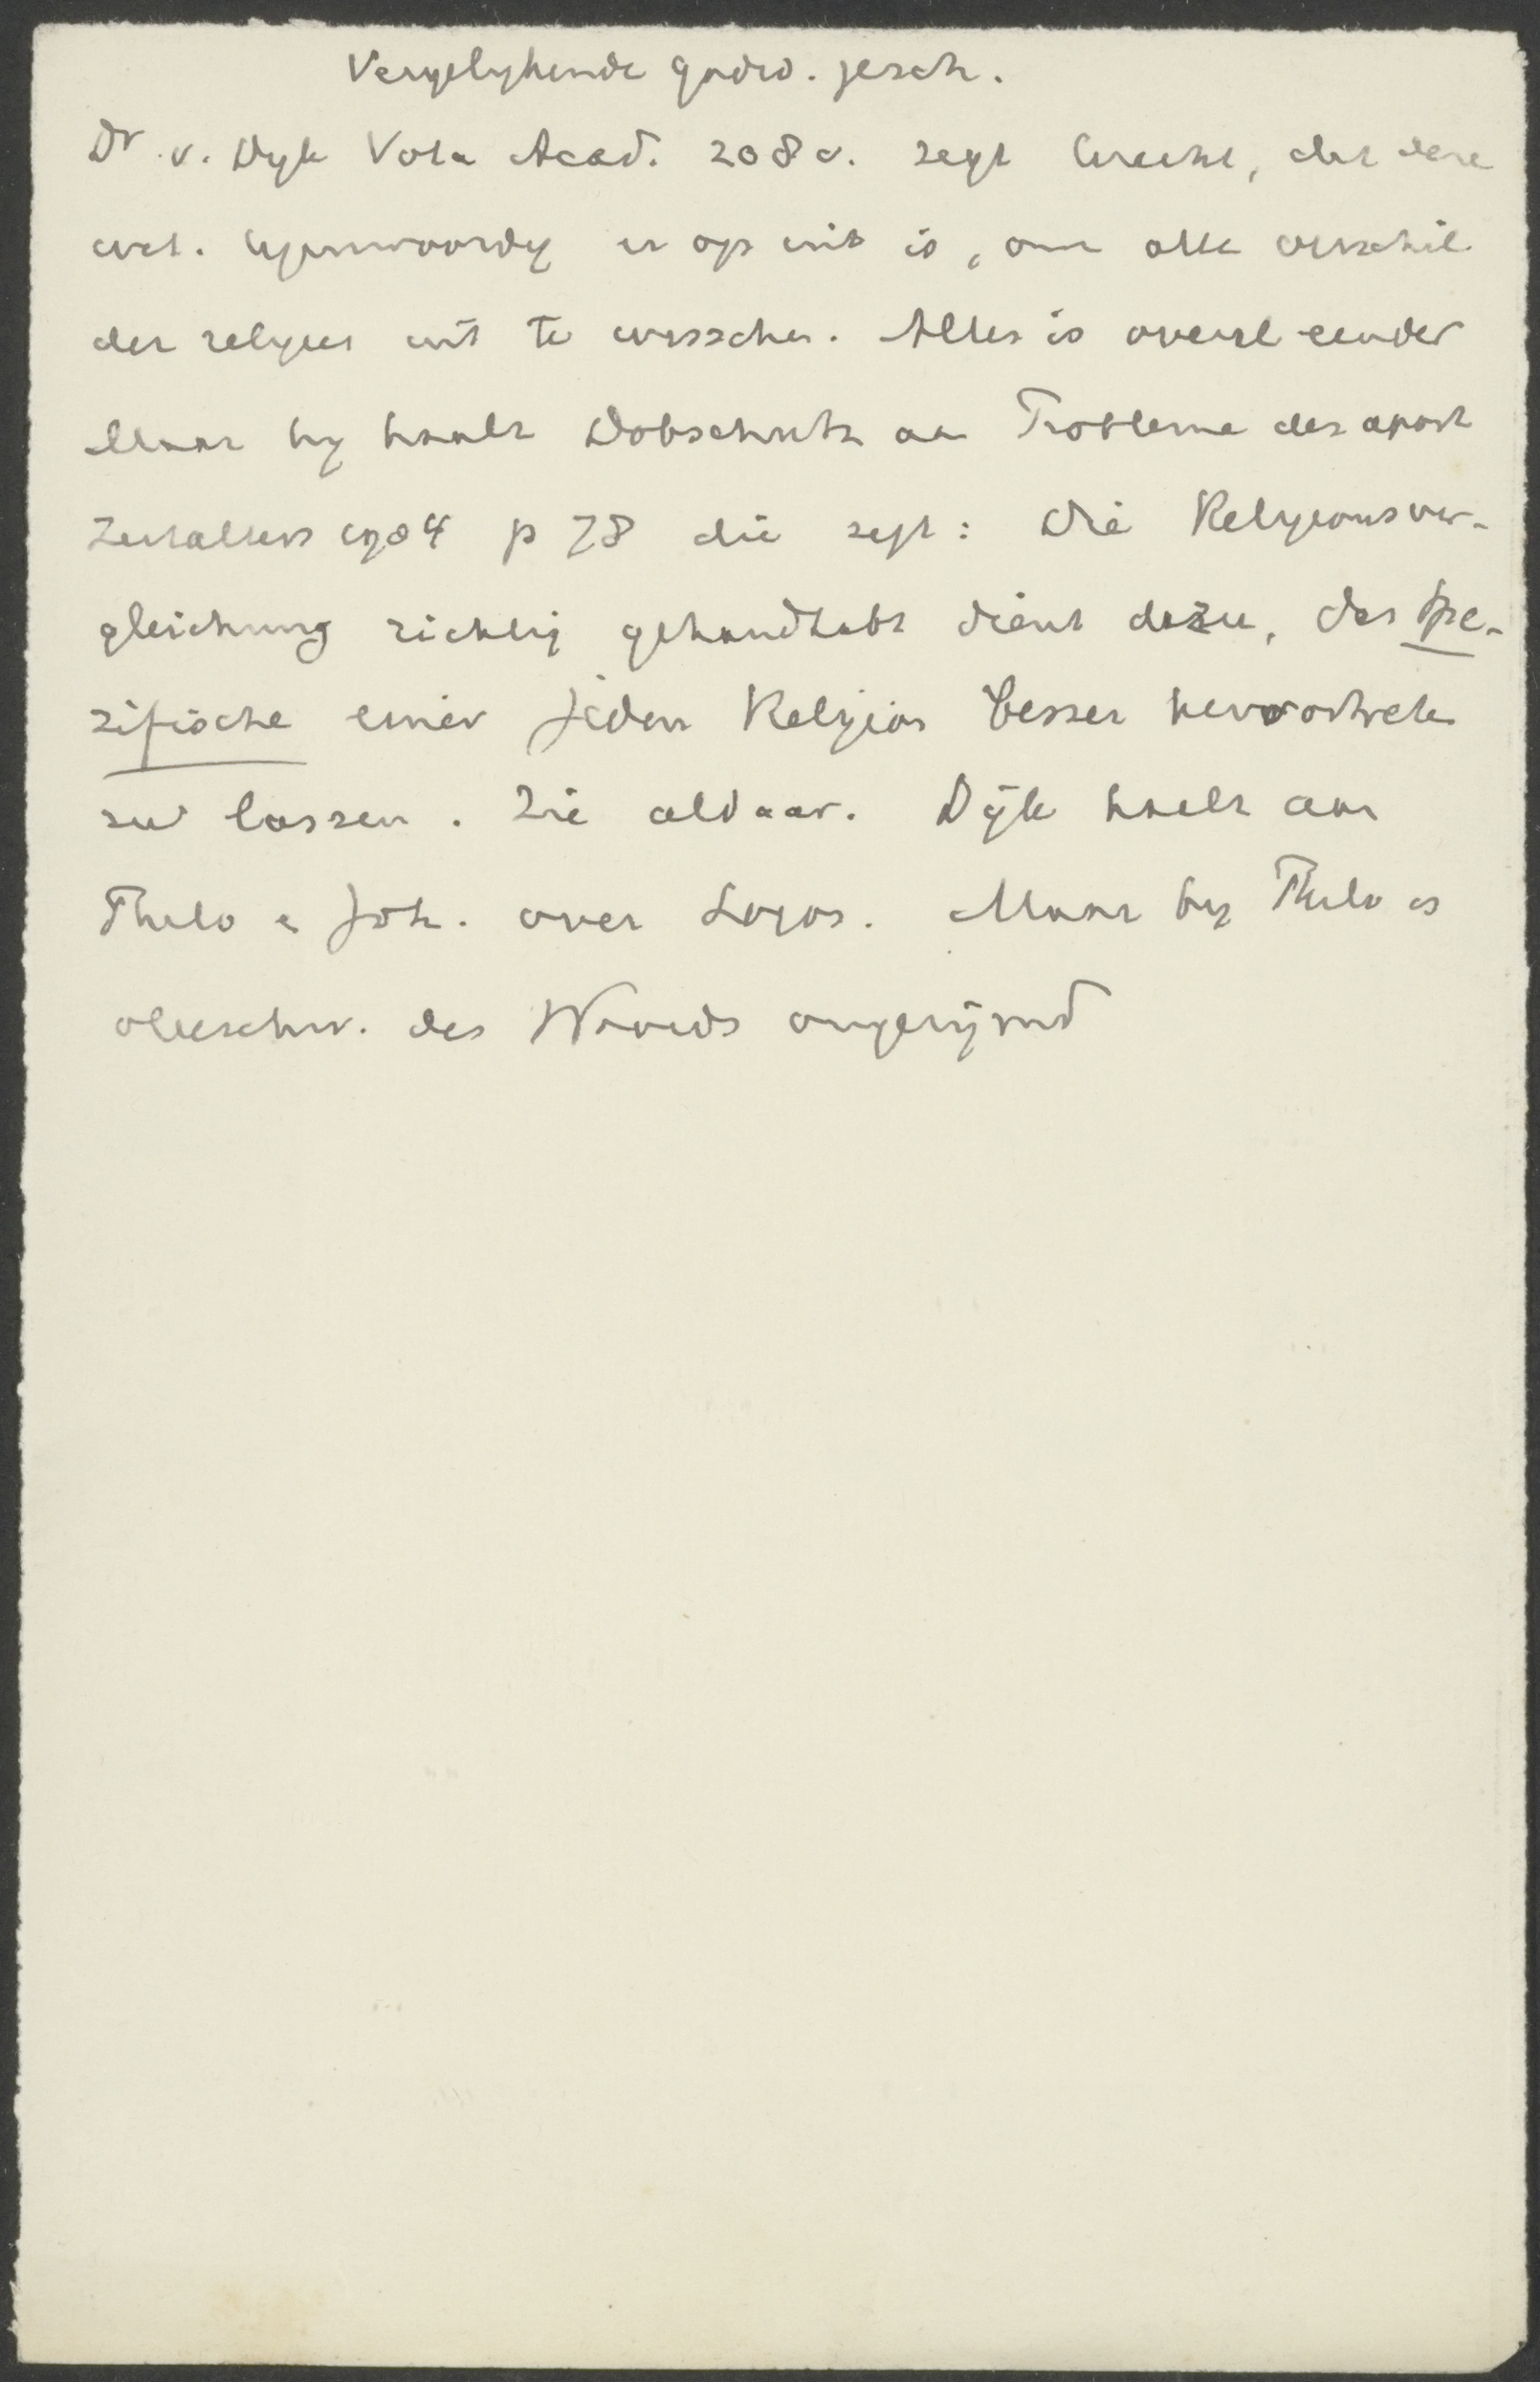 Vergelykende godsd. gesch.
Dr v. Dyk Vota Acad. 208 v. zegt terecht, dat deze
wet. tegenwoordig er op uit is, om alle verschil
der religies uit te wisschen. Alles is overal eender
Maar hy haalt Dobschutz aan Probleme des apost
Zeitalters 1904 p 78 die zegt: Die Religionsver-
gleichung richtig gehandhabt dient dazu, das spe-
zifische einer jeden Religion besser hervortreten
zu lassen. Zie aldaar. Dijk haalt aan
Philo & Joh. over Logos. Maar by Philo is
vleeschw. des Woords ongerijmd